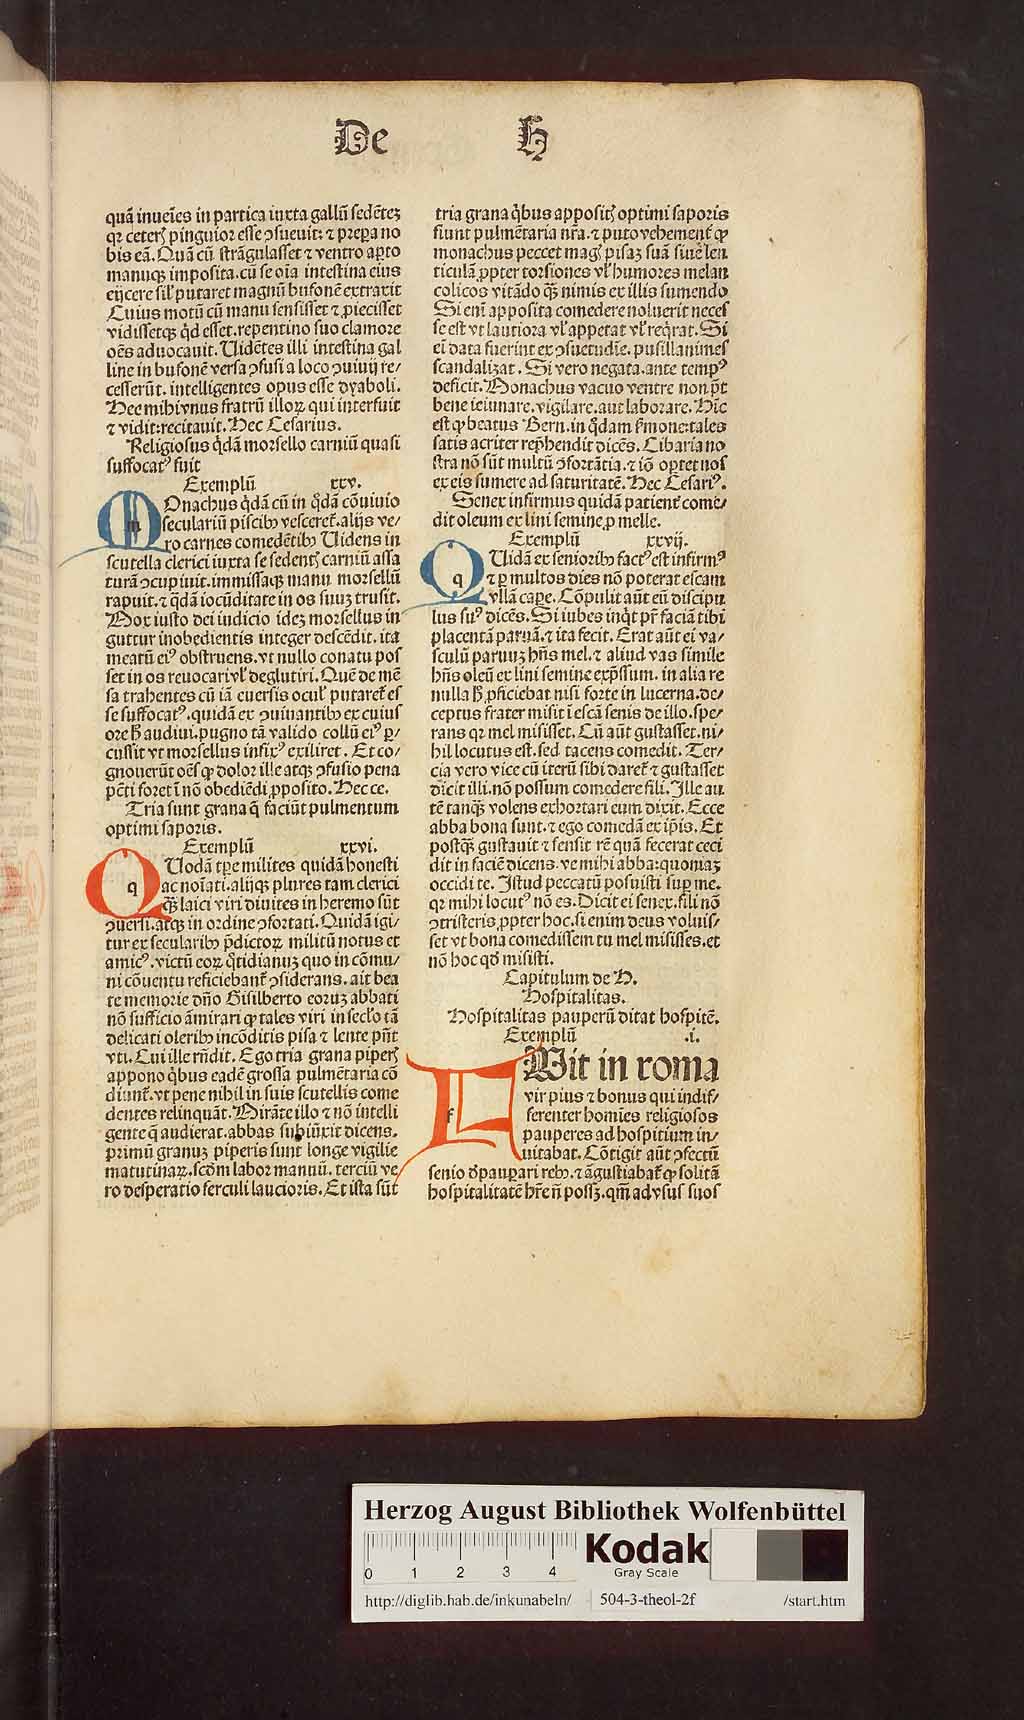 De H
quā inueīes in partica iuxta gallū sedētez
qr ceterꝭ pinguior esse ꝯsueuit: ⁊ prepara no
bis eā. Quā cū strāgulasset ⁊ ventro aꝑto
manuqꝫ imposita. cū se oīa intestina eius
eijcere sil' putaret magnū bufonē extraxit
Cuius motū cū manu sensisset ⁊ ꝓiecisset
vidissetqꝫ qd esset. repentino suo clamore
oēs aduocauit. Uidētes illi intestina gal
line in bufonē versa ꝯfusi a loco ꝯuiuij re/
cesserūt. intelligentes opus esse dyaboli.
Hec mihi vnus fratrū illoꝝ qui interfuit
⁊ vidit: recitauit. Hec Cesarius.
Religiosus qdā morsello carniū quasi
suffocatꝰ fuit
Exemplū xxv.
mOnachus qdā cū in qdā cōuiuio
seculariū piscibꝰ vesceret̄. alijs ve/
ro carnes comedētibꝰ Uidens in
scutella clerici iuxta se sedentꝭ carniū assa
turā ꝯcupiuit. immissaqꝫ manu morsellū
rapuit. ⁊ qdā iocūditate in os suuꝫ trusit.
Mox iusto dei iudicio ideꝫ morsellus in
guttur inobedientis integer descēdit. ita
meatū eiꝰ obstruens. vt nullo conatu pos
set in os reuocari vl' deglutiri. Quē de mē
sa trahentes cū iā euersis ocul' putaret̄ es
se suffocatꝰ. quidā ex ꝯuiuantibꝰ ex cuius
ore ħ audiui. pugno tā valido collū eiꝰ ꝑ/
cussit vt morsellus infixꝰ exiliret. Et co/
gnouerūt oēs ꝙ dolor ille atqꝫ ꝯfusio pena
pcti foret ī nō obediēdi ꝓposito. Hec ce.
Tria sunt grana q̄ faciūt pulmentum
optimi saporis.
Exemplū xxvi.
qUodā tꝑe milites quidā honesti
ac noīati. alijqꝫ plures tam clerici
qꝫ laici viri diuites in heremo sūt
ꝯuersi. atqꝫ in ordine ꝯfortati. Quidā igi/
tur ex secularibꝰ p̄dictoꝝ militū notus et
amicꝰ. victū eoꝝ qtidianuꝫ quo in cōmu/
ni cōuentu reficiebant̄ ꝯsiderans. ait bea
te memorie dn̄o Gisilberto eoruꝫ abbati
nō sufficio āmirari ꝙ tales viri in secl'o tā
delicati oleribꝰ incōditis pisa ⁊ lente pn̄t
vti. Cui ille rn̄dit. Ego tria grana piperꝭ
appono qbus eadē grossa pulmētaria cō
diunt̄. vt pene nihil in suis scutellis come
dentes relinquāt. Mirāte illo ⁊ nō intelli
gente q̄ audierat. abbas subiūxit dicens.
primū granuꝫ piperis sunt longe vigilie
matutinaꝝ. scdm labor manuū. terciū ve
ro desperatio ferculi laucioris. Et ista sūt
tria grana qbus appositꝭ optimi saporis
fiunt pulmētaria nr̄a. ⁊ puto vehement̄ ꝙ
monachus peccet magꝭ pisaꝫ suā siue len
ticulā ꝓpter torsiones vl' humores melan
colicos vitādo qꝫ nimis ex illis sumendo
Si eni apposita comedere noluerit neces
se est vt lautiora vl' appetat vl' reqrat. Si
ei data fuerint ex ꝯsuetudīe. pusillanimes
scandalizat. Si vero negata. ante tempꝰ
deficit. Monachus vacuo ventre non pt̄
bene ieiunare. vigilare. aut laborare. Hic
est ꝙ beatus Bern. in qdam smone: tales
satis acriter rep̄hendit dicēs. Cibaria no
stra nō sūt multū ꝯfortātia. ⁊ iō oꝑtet nos
ex eis sumere ad saturitatē. Hec Cesariꝰ.
Senex infirmus quidā patient̄ come/
dit oleum ex lini semine ꝓ melle.
Exemplū xxvij.
qUidā ex senioribꝰ factꝰ est infirmꝰ
⁊ ꝑ multos dies nō poterat escam
vllā caꝑe. Cōpulit aūt eū discipu
lus suꝰ dicēs. Si iubes inqt pr̄ faciā tibi
placentā paruā. ⁊ ita fecit. Erat aūt ei va/
sculū paruuꝫ hn̄s mel. ⁊ aliud vas simile
hn̄s oleū ex lini semine exp̄ssum. in alia re
nulla ħ ꝓficiebat nisi forte in lucerna. de/
ceptus frater misit ī escā senis de illo. spe/
rans qr mel misisset. Cū aūt gustasset. ni/
hil locutus est. sed tacens comedit. Ter/
cia vero vice cū iterū sibi daret̄ ⁊ gustasset
dicit illi. nō possum comedere fili. Ille au
tē tanqꝫ volens exhortari eum dixit. Ecce
abba bona sunt. ⁊ ego comedā ex ip̄is. Et
postqꝫ gustauit ⁊ sensit rē quā fecerat ceci
dit in faciē dicens. ve mihi abba: quomaꝫ
occidi te. Istud peccatū posuisti suꝑ me.
qr mihi locutꝰ nō es. Dicit ei senex. fili nō
ꝯtristeris ꝓpter hoc. si enim deus voluis/
set vt bona comedissem tu mel misisses. et
nō hoc qd misisti.
Capitulum de H.
Hospitalitas.
Hospitalitas pauperū ditat hospitē.
Exemplū .i.
fUit in roma
vir pius ⁊ bonus qui indif/
ferenter homīes religiosos
pauperes ad hospitium in/
uitabat. Cōtigit aūt ꝯfectū
senio ⁊ depauꝑari rebꝰ. ⁊ āgustiabat̄ ꝙ solitā
hospitalitatē hr̄e n̄ possꝫ. qm̄ ad vsus suos
Herzog August Bibliothek Wolfenbüttel
0 1 2 3 4
Kodak
Gray Scale
http://diglib.hab.de/inkunabeln/ 504-3-theol-2f /start.htm